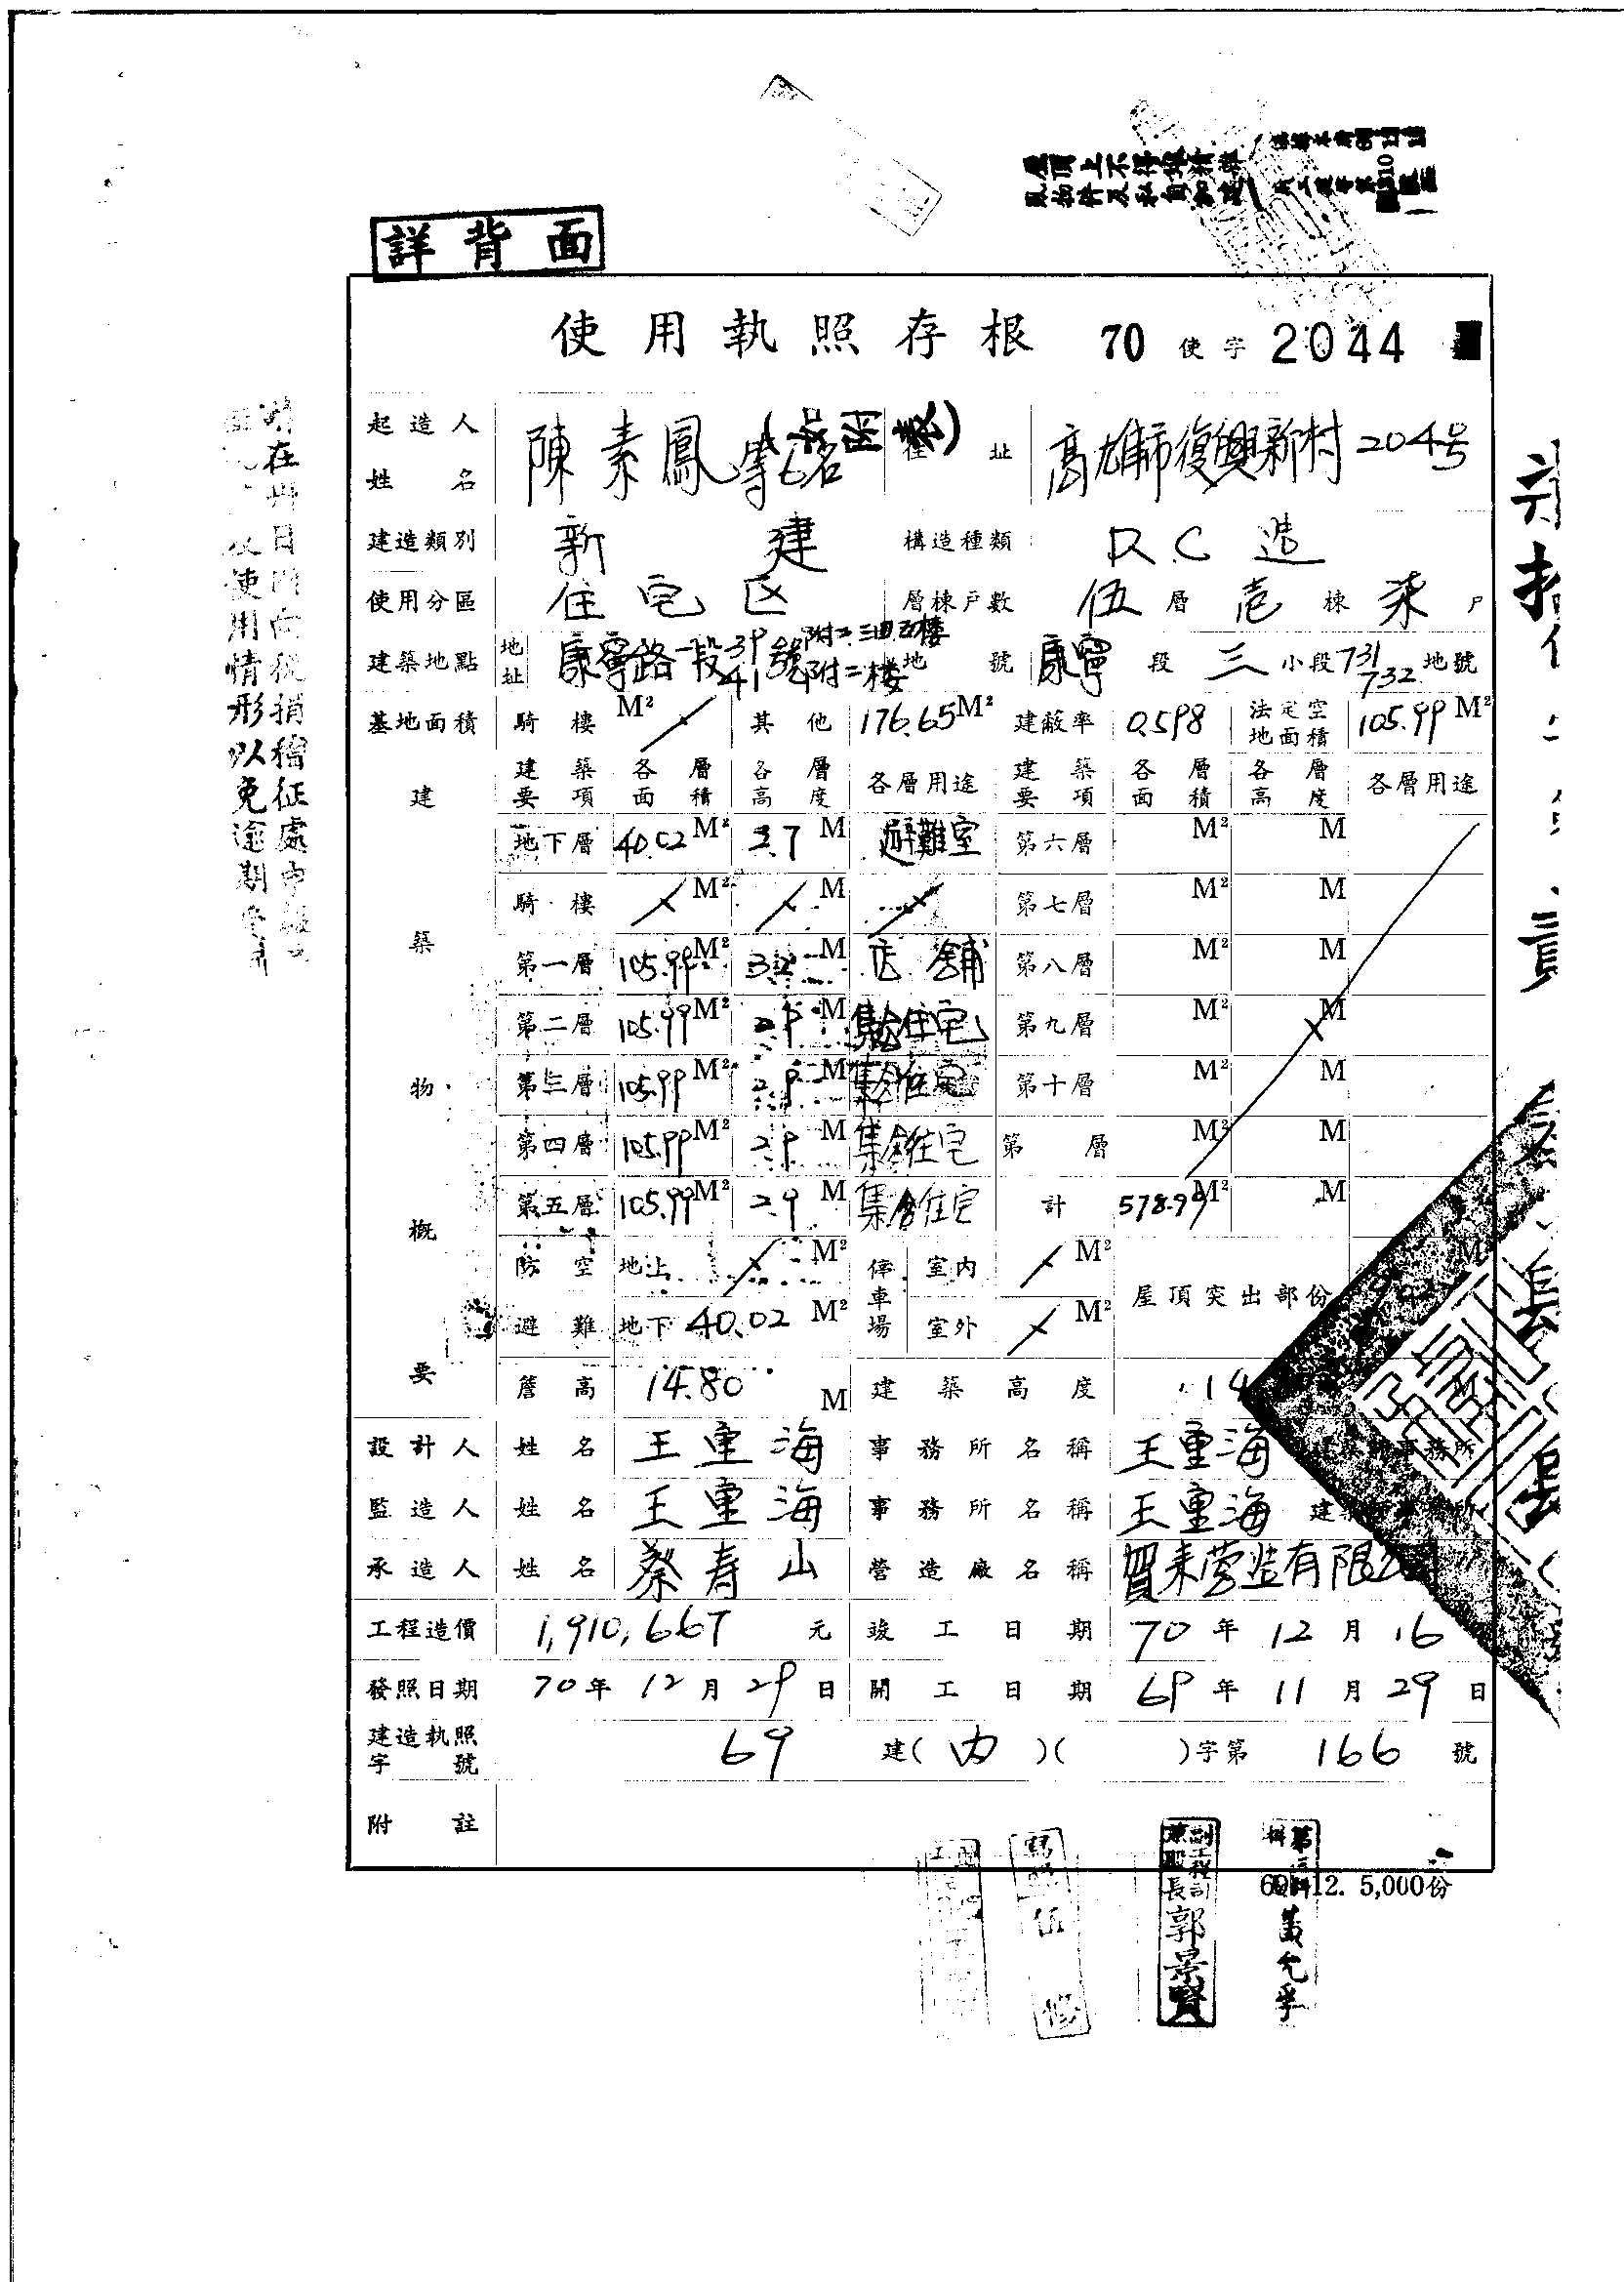 屋頂上不得
詳背面
使用執照存根 70 使字 2044
起造人姓名 陳素鳳等七名 住址 高雄市復興新村204号
建造類別 新建 構造種類 R.C造
使用分區 住宅区 層棟戶數 伍層壱棟柒戶
建築地點 地址 康寧路一段39 41號附二三四五樓 附二樓 地號 康寧段三小段731 732地號
基地面積 騎樓 M² 其他 176.65M² 建蔽率 0.598 法定空地面積 105.99M²
建築物概要
建築要項 各層面積 各層高度 各層用途 建築要項 各層面積 各層高度 各層用途
地下層 40.02M² 2.7M 避難室 第六層 M² M
騎樓 M² M 第七層 M² M
第一層 105.99M² M 店舖 第八層 M² M
第二層 105.99M² 2.9M 集合住宅 第九層 M² M
第三層 105.99M² 2.9M 集合住宅 第十層 M² M
第四層 105.99M² 2.9M 集合住宅 第層 M² M
第五層 105.99M² 2.9M 集合住宅 計 578.97M² M
防空避難 地上 M² 停車場 室內 M² 屋頂突出部份
地下 40.02M² 室外 M²
簷高 14.80M 建築高度 14
設計人 姓名 王重海 事務所名稱 王重海
監造人 姓名 王重海 事務所名稱 王重海
承造人 姓名 蔡寿山 營造廠名稱 有限
工程造價 1,910,667元 竣工日期 70年12月16
發照日期 70年12月29日 開工日期 69年11月29日
建造執照字號 69建(內)( )字第166號
附註
12. 5,000份
郭景賢
使用情形以免逾期